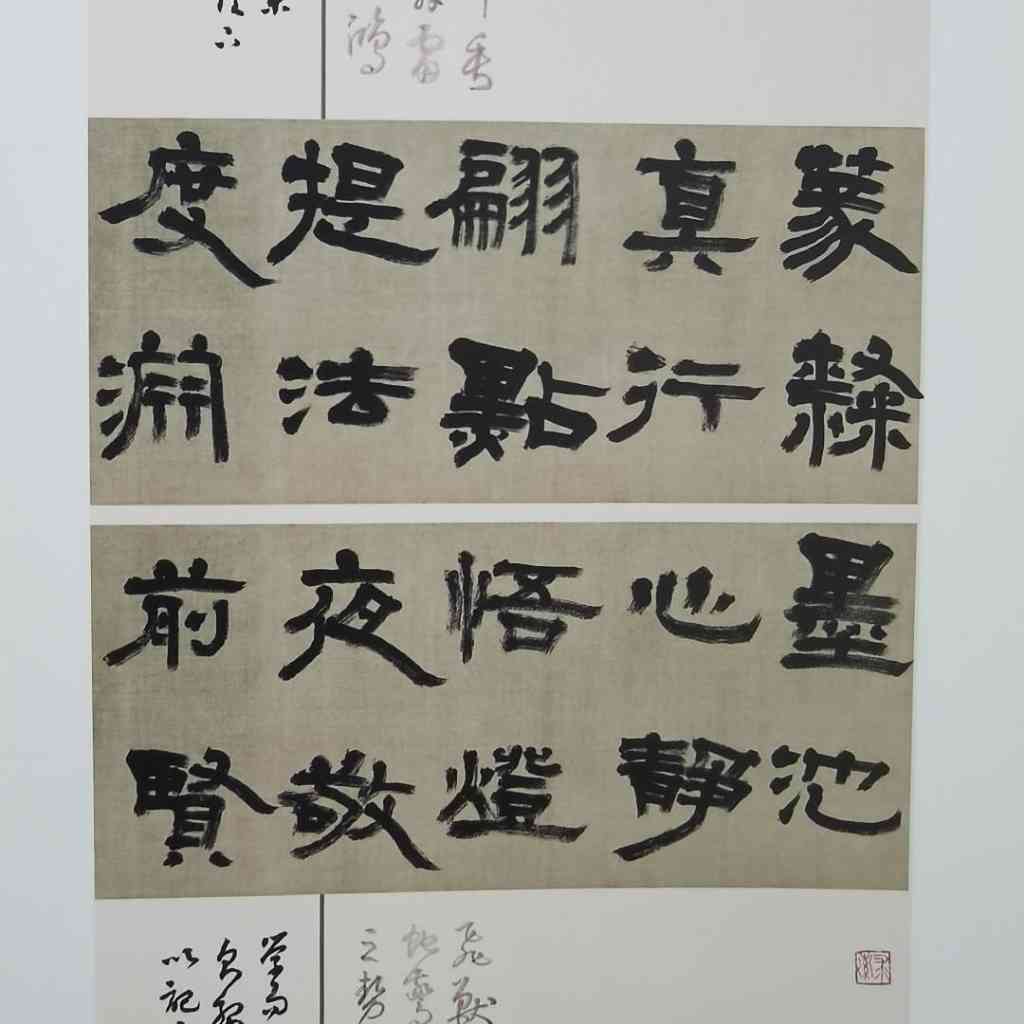 篆隸
真行
翩點
提法
度淵
墨池
心靜
悟燈
夜敬
前賢
鴻
之勢
以記